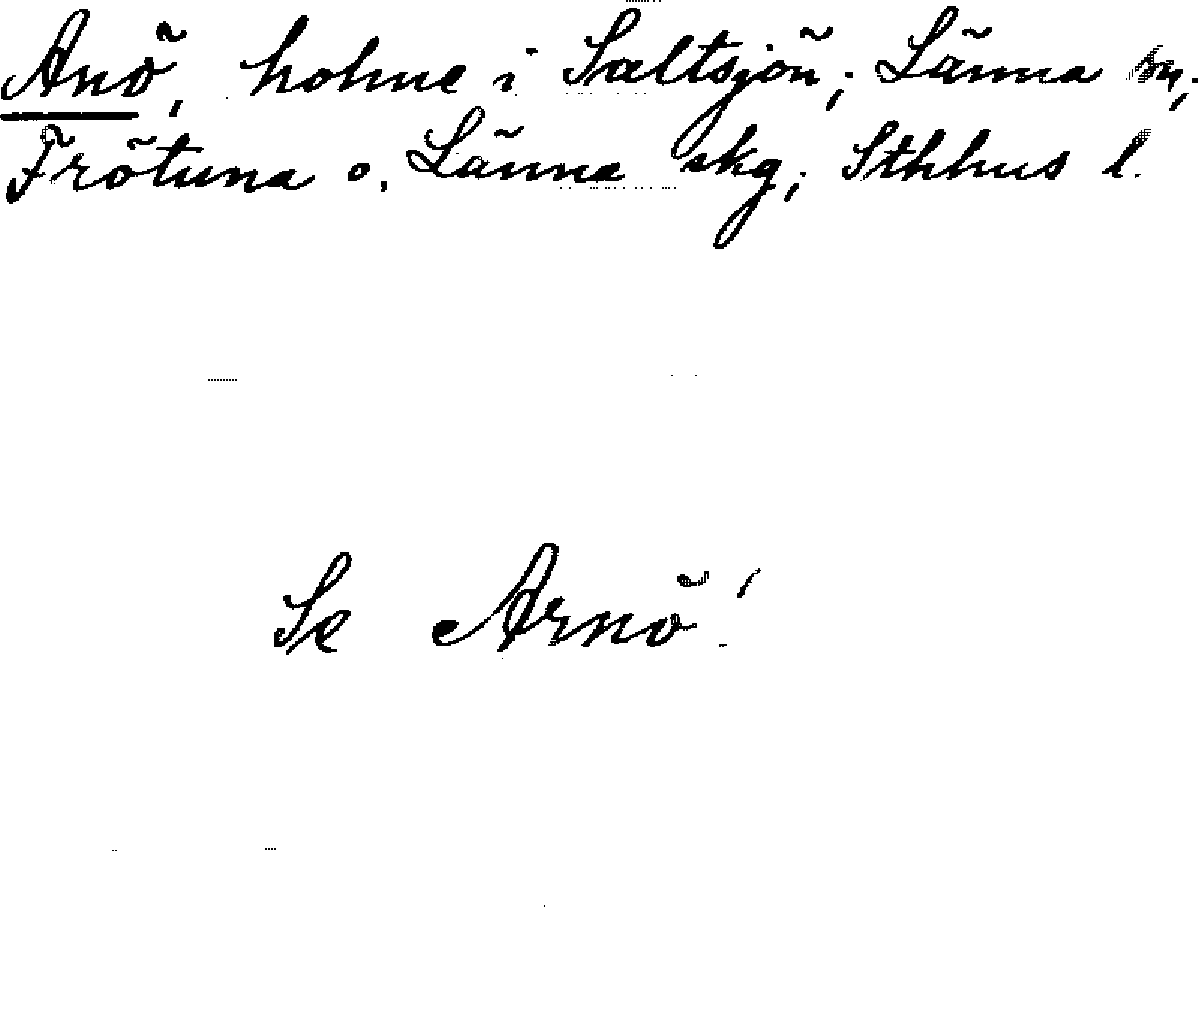 Anö, holme i Saltsjön; Länna sn;
Frötuna o. Länna skg; Sthlms l.
Se Arnö!